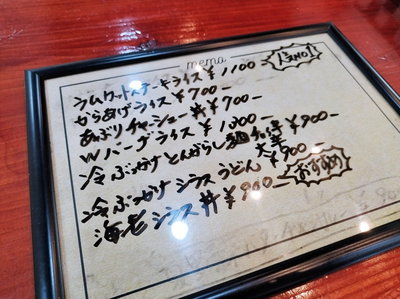 memo
ラムカットステーキライス ¥1100
からあげライス ¥700-
あぶりチャーシュー丼 ¥700-
Wバーグライス ¥1,300
冷ぶっかけとんがらし麺 ¥900-
冷ぶっかけシラスうどん ¥900-
海老シラス丼 ¥900-
おすすめ